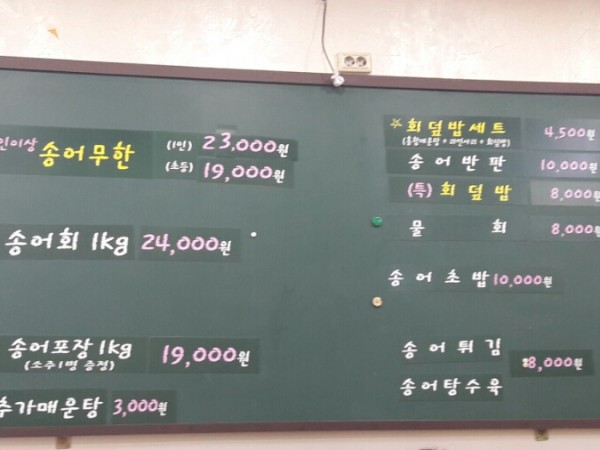 인이상 송어무한 (1인) 23,000원
(초등) 19,000원
송어회 1kg 24,000원
송어포장 1kg 19,000원
(소주1병 증정)
추가매운탕 3,000원
☆회덮밥세트 4,500원
송어반판 10,000원
(특) 회덮밥 8,000원
물 회 8,000원
송어초밥 10,000원
송어튀김
송어탕수육 8,000원